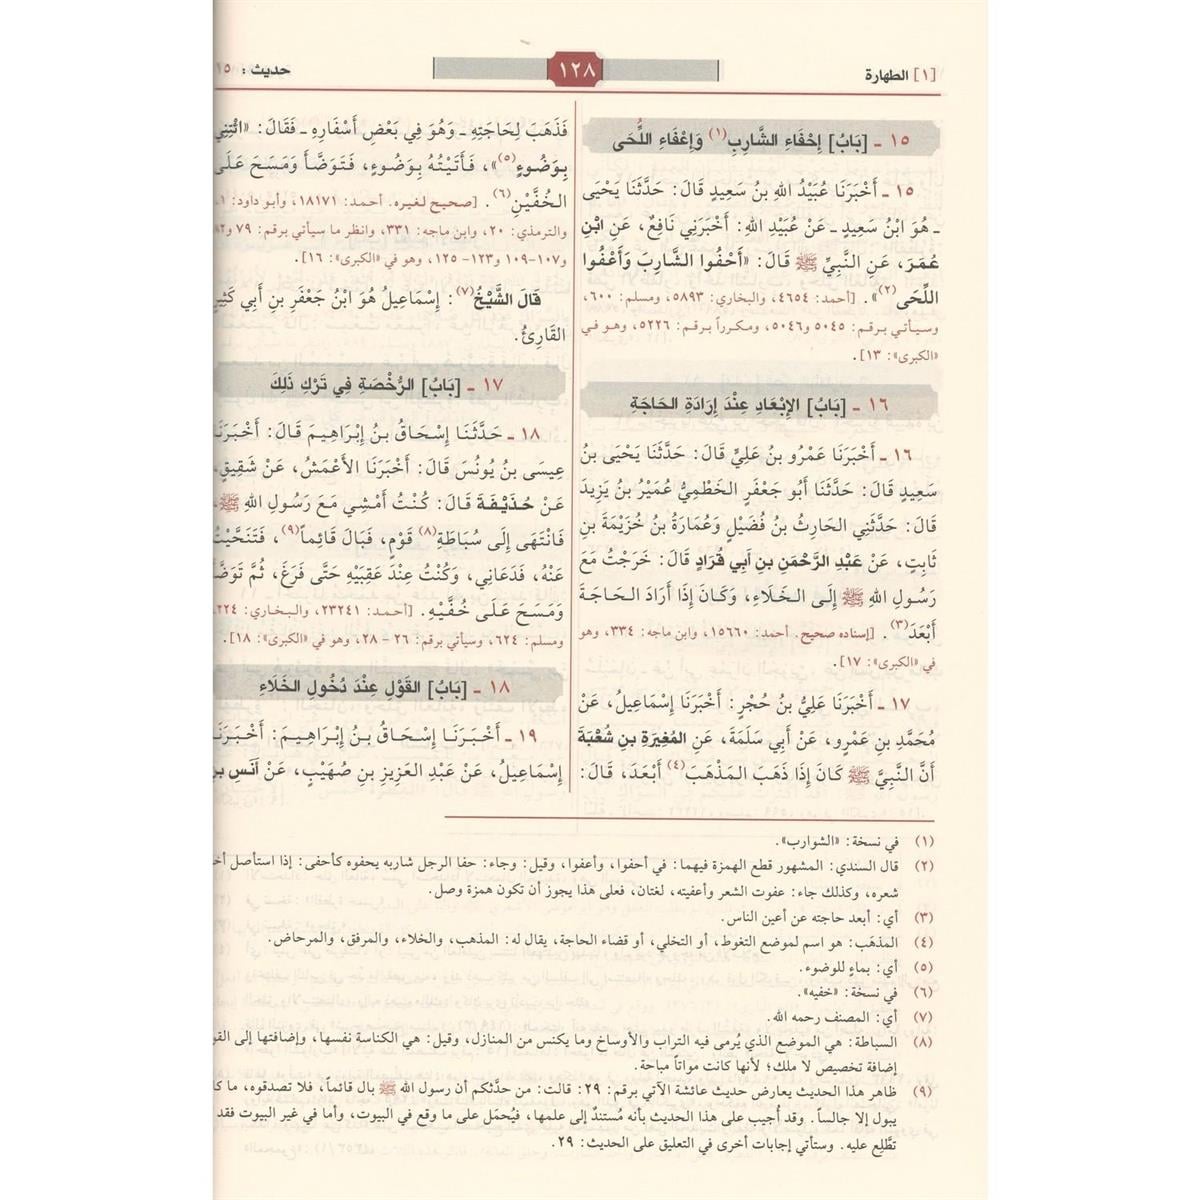 [١] الطهارة
١٢٨
حديث : ١٥
١٥ ـ [بَابُ] إِحْفَاءِ الشَّارِبِ(١) وَإِعْفَاءِ اللُّحَى
١٥ ـ أَخْبَرَنَا عُبَيْدُ اللهِ بنُ سَعِيدٍ قَالَ: حَدَّثَنَا يَحْيَى
ـ هُوَ ابْنُ سَعِيدٍ ـ عَنْ عُبَيْدِ اللهِ: أَخْبَرَنِي نَافِعٌ، عَنِ ابْنِ
عُمَرَ، عَنِ النَّبِيِّ ﷺ قَالَ: «أَحْفُوا الشَّارِبَ وَأَعْفُوا
اللِّحَى(٢)». [أحمد: ٤٦٥٤، والبخاري: ٥٨٩٣، ومسلم: ٦٠٠،
وسيأتي برقم: ٥٠٤٥ و٥٠٤٦، ومكرراً برقم: ٥٢٢٦، وهو في
«الكبرى»: ١٣].
١٦ ـ [بَابُ] الإِبْعَادِ عِنْدَ إِرَادَةِ الحَاجَةِ
١٦ ـ أَخْبَرَنَا عَمْرُو بنُ عَلِيٍّ قَالَ: حَدَّثَنَا يَحْيَى بنُ
سَعِيدٍ قَالَ: حَدَّثَنَا أَبُو جَعْفَرٍ الخَطْمِيُّ عُمَيْرُ بنُ يَزِيدَ
قَالَ: حَدَّثَنِي الحَارِثُ بنُ فُضَيْلٍ وَعُمَارَةُ بنُ خُزَيْمَةَ بنِ
ثَابِتٍ، عَنْ عَبْدِ الرَّحْمَنِ بنِ أَبِي قُرَادٍ قَالَ: خَرَجْتُ مَعَ
رَسُولِ اللهِ ﷺ إِلَى الخَلَاءِ، وَكَانَ إِذَا أَرَادَ الحَاجَةَ
أَبْعَدَ(٣). [إسناده صحيح. أحمد: ١٥٦٦٠، وابن ماجه: ٣٣٤، وهو
في «الكبرى»: ١٧].
١٧ ـ أَخْبَرَنَا عَلِيُّ بنُ حُجْرٍ: أَخْبَرَنَا إِسْمَاعِيلُ، عَنْ
مُحَمَّدِ بنِ عَمْرٍو، عَنْ أَبِي سَلَمَةَ، عَنِ المُغِيرَةِ بنِ شُعْبَةَ
أَنَّ النَّبِيَّ ﷺ كَانَ إِذَا ذَهَبَ المَذْهَبَ(٤) أَبْعَدَ، قَالَ:
فَذَهَبَ لِحَاجَتِهِ ـ وَهُوَ فِي بَعْضِ أَسْفَارِهِ ـ فَقَالَ: «ائْتِنِي
بِوَضُوءٍ(٥)»، فَأَتَيْتُهُ بِوَضُوءٍ، فَتَوَضَّأَ وَمَسَحَ عَلَى
الخُفَّيْنِ(٦). [صحيح لغيره. أحمد: ١٨١٧١، وأبو داود: ١،
والترمذي: ٢٠، وابن ماجه: ٣٣١، وانظر ما سيأتي برقم: ٧٩ و٨٢
و١٠٧-١٠٩ و١٢٣- ١٢٥، وهو في «الكبرى»: ١٦].
قَالَ الشَّيْخُ(٧): إِسْمَاعِيلُ هُوَ ابْنُ جَعْفَرِ بنِ أَبِي كَثِيرٍ
القَارِئُ.
١٧ ـ [بَابُ] الرُّخْصَةِ فِي تَرْكِ ذَلِكَ
١٨ ـ حَدَّثَنَا إِسْحَاقُ بنُ إِبْرَاهِيمَ قَالَ: أَخْبَرَنَا
عِيسَى بنُ يُونُسَ قَالَ: أَخْبَرَنَا الأَعْمَشُ، عَنْ شَقِيقٍ،
عَنْ حُذَيْفَةَ قَالَ: كُنْتُ أَمْشِي مَعَ رَسُولِ اللهِ ﷺ،
فَانْتَهَى إِلَى سُبَاطَةِ(٨) قَوْمٍ، فَبَالَ قَائِماً(٩)، فَتَنَحَّيْتُ
عَنْهُ، فَدَعَانِي، وَكُنْتُ عِنْدَ عَقِبَيْهِ حَتَّى فَرَغَ، ثُمَّ تَوَضَّأَ
وَمَسَحَ عَلَى خُفَّيْهِ. [أحمد: ٢٣٢٤١، والبخاري: ٢٢٤،
ومسلم: ٦٢٤، وسيأتي برقم: ٢٦ - ٢٨، وهو في «الكبرى»: ١٨].
١٨ ـ [بَابُ] القَوْلِ عِنْدَ دُخُولِ الخَلَاءِ
١٩ ـ أَخْبَرَنَا إِسْحَاقُ بنُ إِبْرَاهِيمَ: أَخْبَرَنَا
إِسْمَاعِيلُ، عَنْ عَبْدِ العَزِيزِ بنِ صُهَيْبٍ، عَنْ أَنَسِ بنِ
(١) في نسخة: «الشوارب».
(٢) قال السندي: المشهور قطع الهمزة فيهما: في أحفوا، وأعفوا، وقيل: وجاء: حفا الرجل شاربه يحفوه كأحفى: إذا استأصل أخذ
شعره، وكذلك جاء: عفوت الشعر وأعفيته، لغتان، فعلى هذا يجوز أن تكون همزة وصل.
(٣) أي: أبعد حاجته عن أعين الناس.
(٤) المذهَب: هو اسم لموضع التغوط، أو التخلي، أو قضاء الحاجة، يقال له: المذهب، والخلاء، والمرفق، والمرحاض.
(٥) أي: بماءٍ للوضوء.
(٦) في نسخة: «خفيه».
(٧) أي: المصنف رحمه الله.
(٨) السباطة: هي الموضع الذي يُرمى فيه التراب والأوساخ وما يكنس من المنازل، وقيل: هي الكناسة نفسها، وإضافتها إلى القوم
إضافة تخصيص لا ملك؛ لأنها كانت مواتاً مباحة.
(٩) ظاهر هذا الحديث يعارض حديث عائشة الآتي برقم: ٢٩: قالت: من حدَّثكم أن رسول الله ﷺ بال قائماً، فلا تصدقوه، ما كان
يبول إلا جالساً. وقد أُجيب على هذا الحديث بأنه مُستندٌ إلى علمها، فيُحمَل على ما وقع في البيوت، وأما في غير البيوت فقد
تطَّلِع عليه. وستأتي إجابات أخرى في التعليق على الحديث: ٢٩.